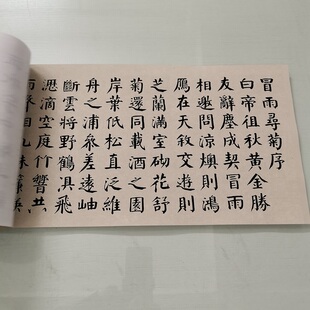 冒雨尋菊序
白帝徂秋黃金勝
友辭塵成契冒雨
相邀問涼燠則鴻
鴈在天敘交遊則
芝蘭滿室砌花舒
菊還同載酒之園
岸葉低松直泛維
舟之浦參差遠岫
斷雲將野鶴俱飛
滴空庭竹響共